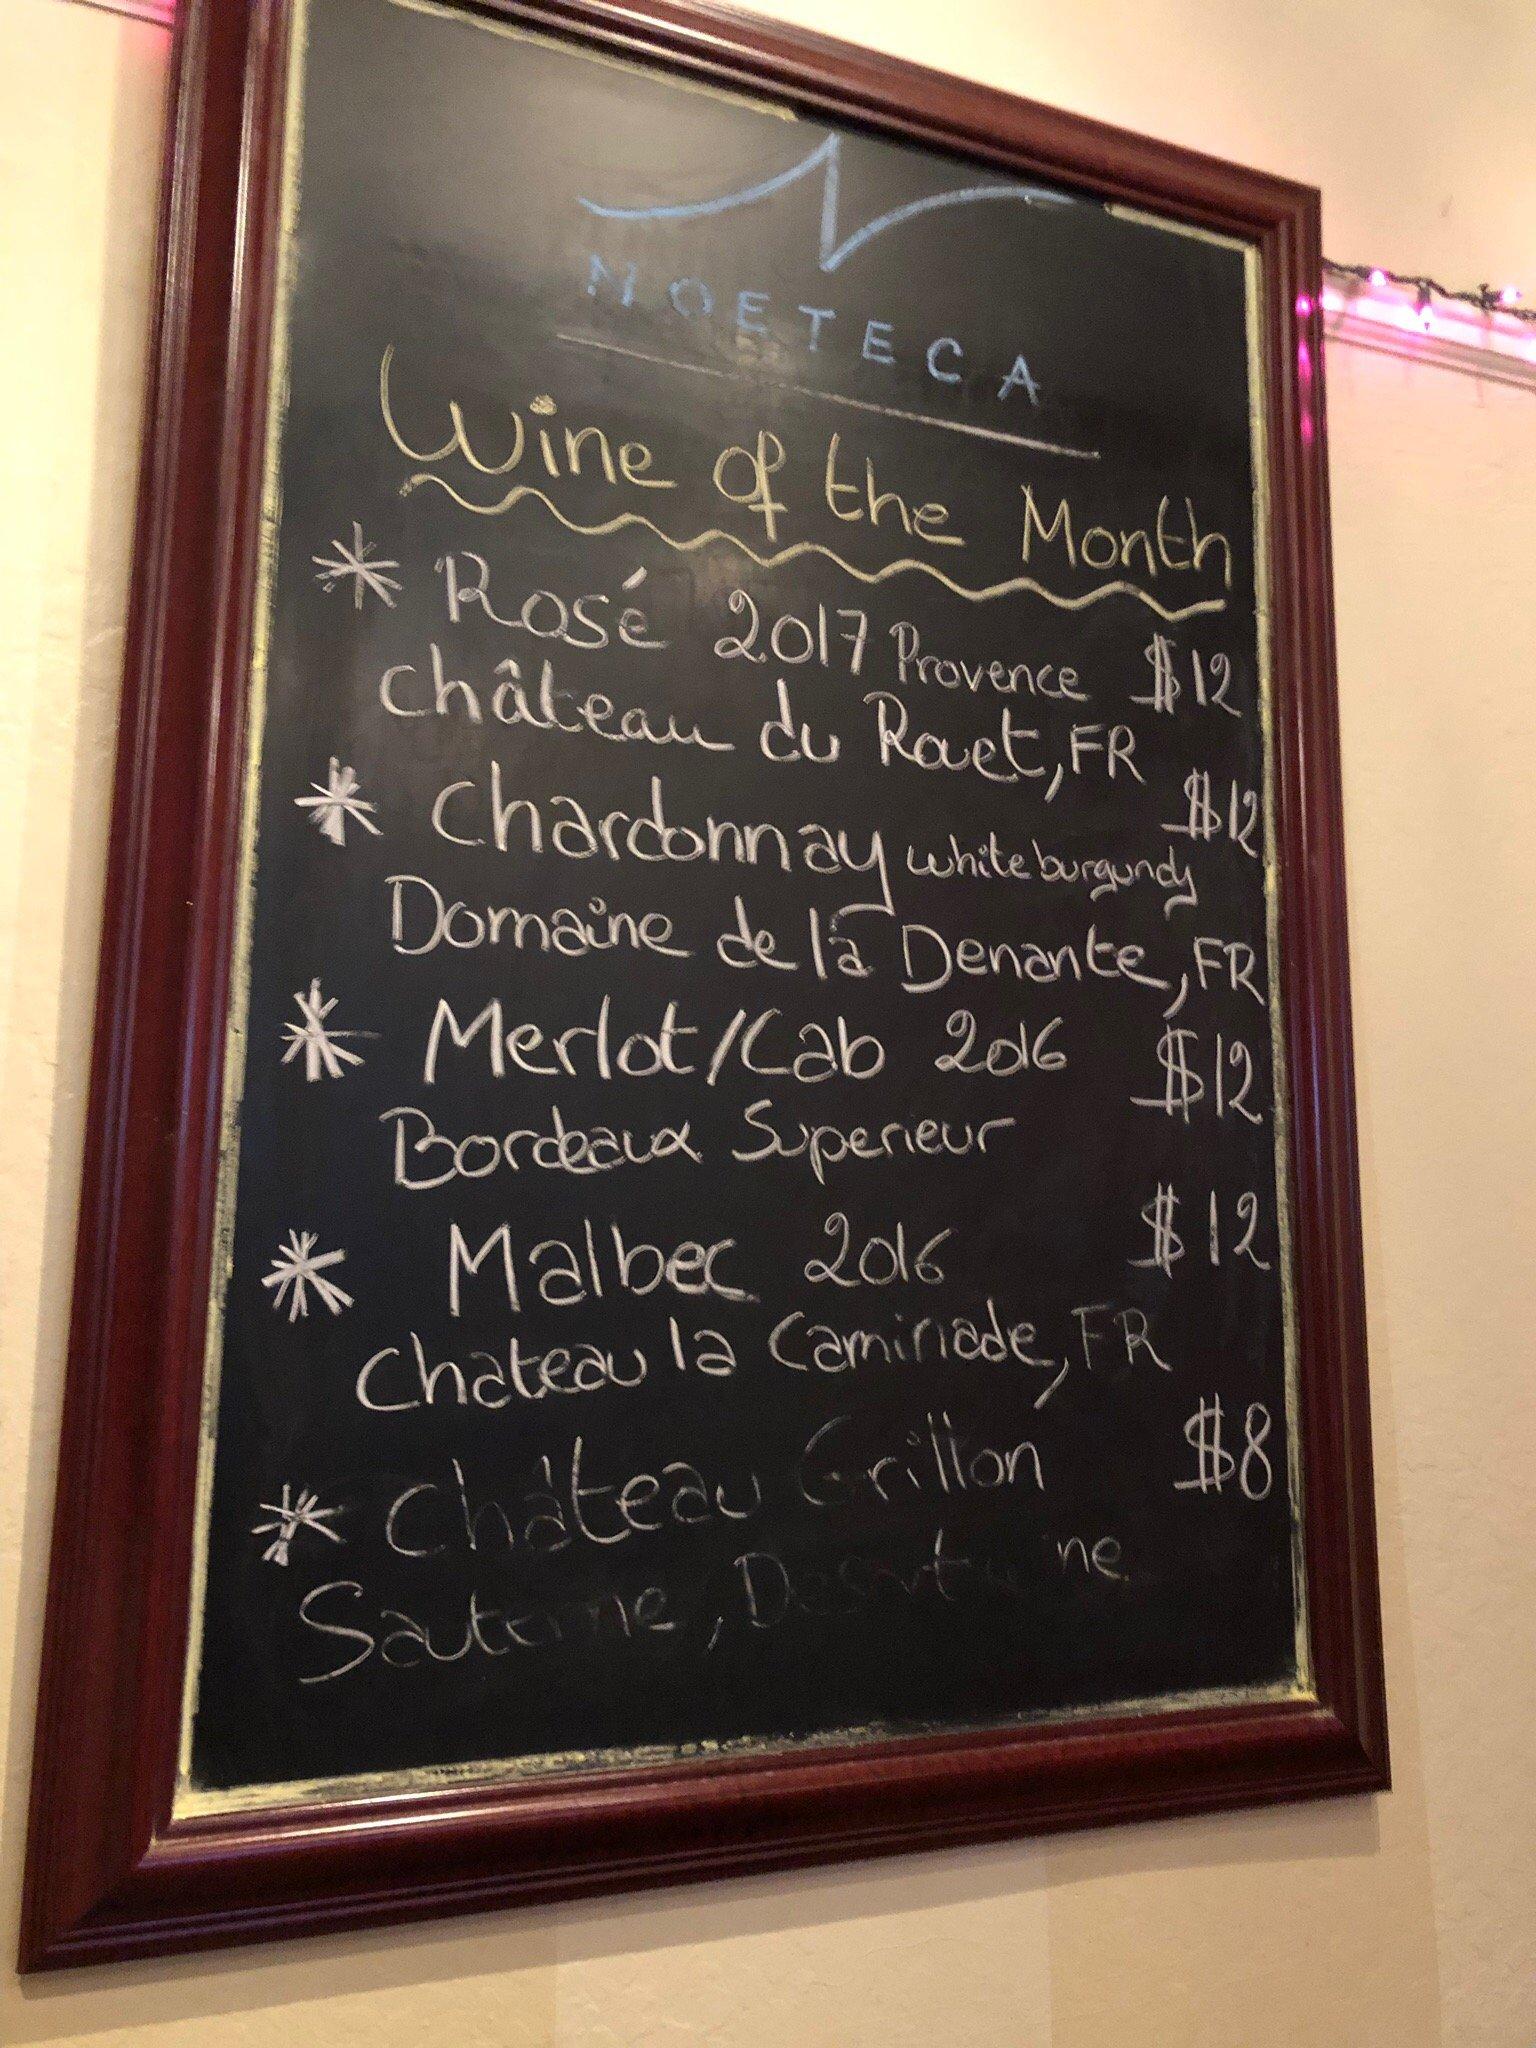 NOETECA
Wine of the Month
* Rosé 2017 Provence $12
château du Rouet, FR
* Chardonnay white burgundy $12
Domaine de la Denante, FR
* Merlot/Cab 2016 $12
Bordeaux Superieur
* Malbec 2016 $12
Chateau la Caminade, FR
* Château Grillon $8
Sauterne,